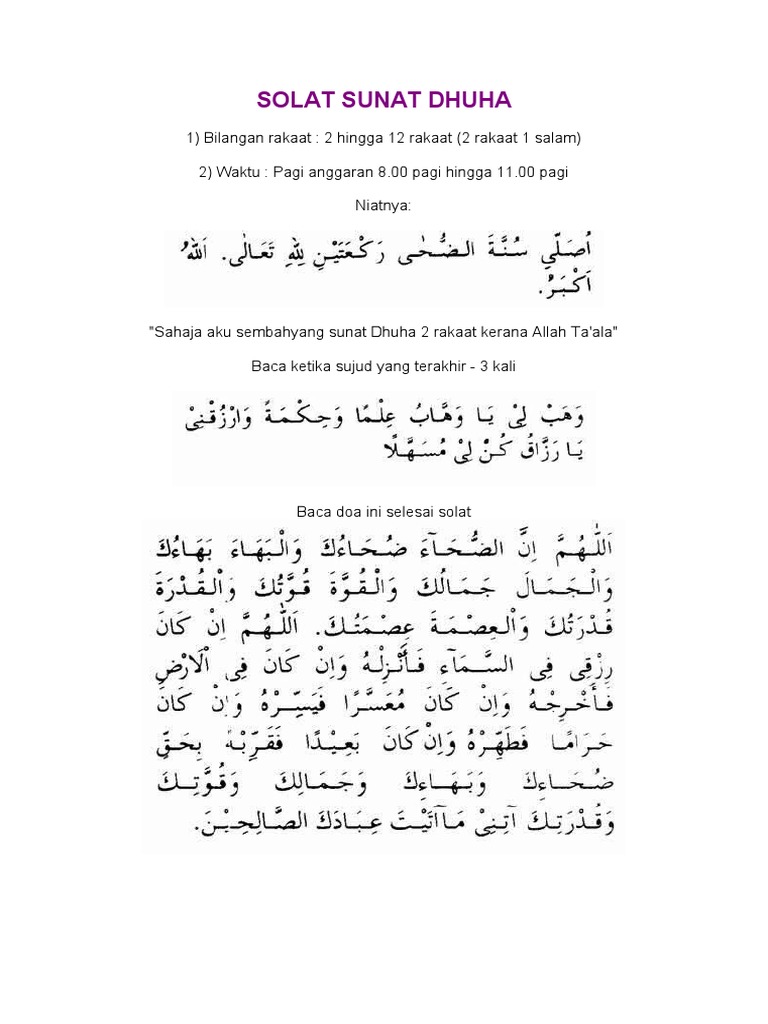 SOLAT SUNAT DHUHA
1) Bilangan rakaat : 2 hingga 12 rakaat (2 rakaat 1 salam)
2) Waktu : Pagi anggaran 8.00 pagi hingga 11.00 pagi
Niatnya:
اُصَلِّي سُنَّةَ الضُّحٰى رَكْعَتَيْنِ لِلّٰهِ تَعَالٰى. اَللّٰهُ
اَكْبَرُ.
"Sahaja aku sembahyang sunat Dhuha 2 rakaat kerana Allah Ta'ala"
Baca ketika sujud yang terakhir - 3 kali
وَهَبْ لِيْ يَا وَهَّابُ عِلْمًا وَحِكْمَةً وَارْزُقْنِيْ
يَا رَزَّاقُ كُنْ لِيْ مُسَهِّلًا
Baca doa ini selesai solat
اَللّٰهُمَّ اِنَّ الضُّحَآءَ ضُحَاءُكَ وَالْبَهَاءَ بَهَاءُكَ
وَالْجَمَالَ جَمَالُكَ وَالْقُوَّةَ قُوَّتُكَ وَالْقُدْرَةَ
قُدْرَتُكَ وَالْعِصْمَةَ عِصْمَتُكَ. اَللّٰهُمَّ اِنْ كَانَ
رِزْقِى فِى السَّمَآءِ فَأَنْزِلْهُ وَاِنْ كَانَ فِى اْلَارْضِ
فَأَخْرِجْهُ وَاِنْ كَانَ مُعَسَّرًا فَيَسِّرْهُ وَاِنْ كَانَ
حَرَامًا فَطَهِّرْهُ وَاِنْ كَانَ بَعِيْدًا فَقَرِّبْهُ بِحَقِّ
ضُحَاءِكَ وَبَهَاءِكَ وَجَمَالِكَ وَقُوَّتِكَ
وَقُدْرَتِكَ آتِنِىْ مَآآتَيْتَ عِبَادَكَ الصَّالِحِيْنَ.